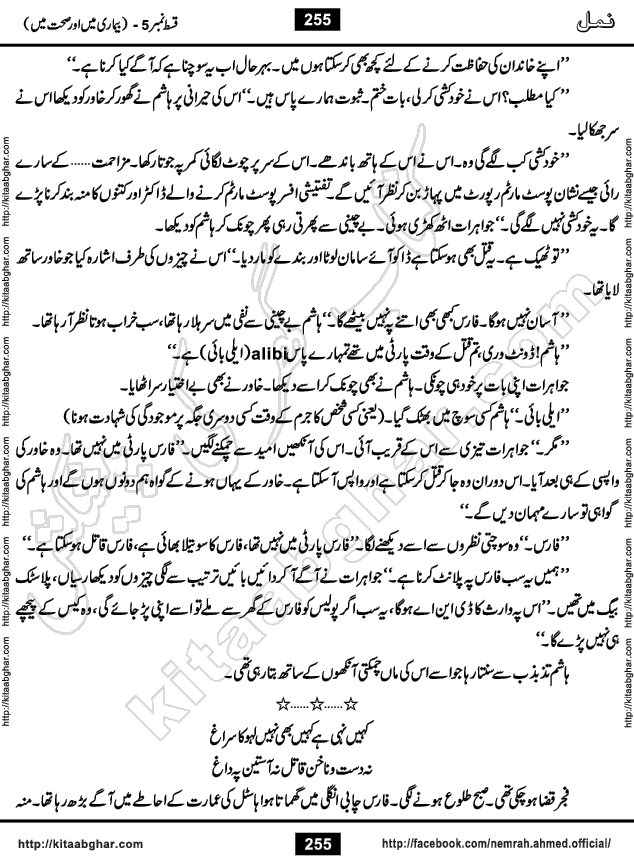 نمل
255
قسط نمبر 5 - (بیماری میں اور صحت میں)
’’اپنے خاندان کی حفاظت کرنے کے لئے کچھ بھی کر سکتا ہوں میں۔ بہرحال اب یہ سوچنا ہے کہ آگے کیا کرنا ہے۔‘‘
’’کیا مطلب؟ اس نے خودکشی کر لی، بات ختم۔ ثبوت ہمارے پاس ہیں۔‘‘ اس کی حیرانی پر ہاشم نے گھور کر خاور کو دیکھا اس نے
سر جھکا لیا۔
’’خودکشی کب لگے گی وہ۔ اس نے اس کے ہاتھ باندھے۔ اس کے سر پر چوٹ لگائی کمر پہ جوتا رکھا۔ مزاحمت...... کے سارے
رائی جیسے نشان پوسٹ مارٹم رپورٹ میں پہاڑ بن کر نظر آئیں گے۔ تفتیشی افسر پوسٹ مارٹم کرنے والے ڈاکٹر اور کتنوں کا منہ بند کرنا پڑے
گا۔ یہ خودکشی نہیں لگے گی۔‘‘ جواہرات اٹھ کھڑی ہوئی۔ بے چینی سے پھرتی رہی پھر چونک کر ہاشم کو دیکھا۔
’’تو ٹھیک ہے۔ یہ قتل بھی ہو سکتا ہے ڈاکو آئے سامان لوٹا اور بندے کو مار دیا۔‘‘ اس نے چیزوں کی طرف اشارہ کیا جو خاور ساتھ
لایا تھا۔
’’آسان نہیں ہوگا۔ فارس کبھی بھی اتنے پہ نہیں بیٹھے گا۔‘‘ ہاشم بے چینی سے نفی میں سر ہلا رہا تھا، سب خراب ہوتا نظر آ رہا تھا۔
’’ہاشم! ڈونٹ وری، تم قتل کے وقت پارٹی میں تھے تمہارے پاس alibi (ایلی بائی) ہے۔‘‘
جواہرات اپنی بات پر خود ہی چونکی۔ ہاشم نے بھی چونک کر اسے دیکھا۔ خاور نے بھی بے اختیار سر اٹھایا۔
’’ایلی بائی۔‘‘ ہاشم کسی سوچ میں بھٹک گیا۔ (یعنی کسی شخص کا جرم کے وقت کسی دوسری جگہ پر موجودگی کی شہادت ہونا)
’’مگر۔‘‘ جواہرات تیزی سے اس کے قریب آئی۔ اس کی آنکھیں امید سے چمکنے لگیں۔ ’’فارس پارٹی میں نہیں تھا۔ وہ خاور کی
واپسی کے ہی بعد آیا۔ اس دوران وہ جا کر قتل کر سکتا ہے اور واپس آ سکتا ہے۔ خاور کے یہاں ہونے کے گواہ ہم دونوں ہوں گے اور ہاشم کی
گواہی تو سارے مہمان دیں گے۔‘‘
’’فارس۔‘‘ وہ سوچتی نظروں سے اسے دیکھنے لگا۔ ’’فارس پارٹی میں نہیں تھا، فارس کا سوتیلا بھائی ہے، فارس قاتل ہو سکتا ہے۔‘‘
’’ہمیں یہ سب فارس پہ پلانٹ کرنا ہے۔‘‘ جواہرات نے آگے آ کر دائیں بائیں ترتیب سے لگی چیزوں کو دیکھا رسیاں، پلاسٹک
بیگ میں تھیں۔ ’’اس پہ وارث کا ڈی این اے ہوگا، یہ سب اگر پولیس کو فارس کے گھر سے ملے تو اسے اپنی پڑ جائے گی، وہ کیس کے پیچھے
ہی نہیں پڑے گا۔‘‘
ہاشم تذبذب سے سنتا رہا جو اسے اس کی ماں چمکتی آنکھوں کے ساتھ بتا رہی تھی۔
☆......☆......☆
کہیں نہیں ہے کہیں بھی نہیں لہو کا سراغ
نہ دست و ناخن قاتل نہ آستین پہ داغ
فجر قضا ہو چکی تھی۔ صبح طلوع ہونے لگی۔ فارس چابی انگلی میں گھماتا ہوا ہاسٹل کی عمارت کے احاطے میں آگے بڑھ رہا تھا۔ منہ
http://kitaabghar.com
255
http://facebook.com/nemrah.ahmed.official/
http://kitaabghar.com http://kitaabghar.com http://kitaabghar.com http://kitaabghar.com http://kitaabghar.com
http://kitaabghar.com http://kitaabghar.com http://kitaabghar.com http://kitaabghar.com http://kitaabghar.com
کتاب گھر کی پیشکش
kitaabghar.com